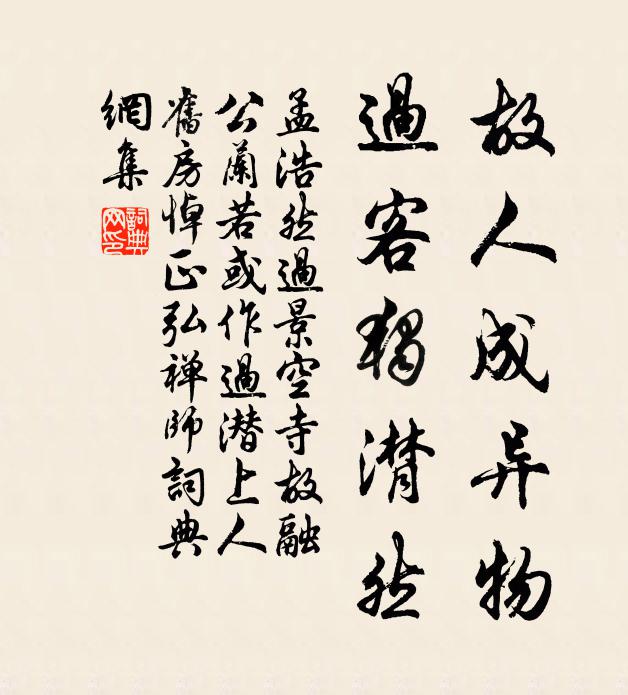 故人成异物
過客獨潸然
孟浩然過景空寺故融
公蘭若或作過潜上人
舊房悼正弘禅師詞典
網集
詞典网印